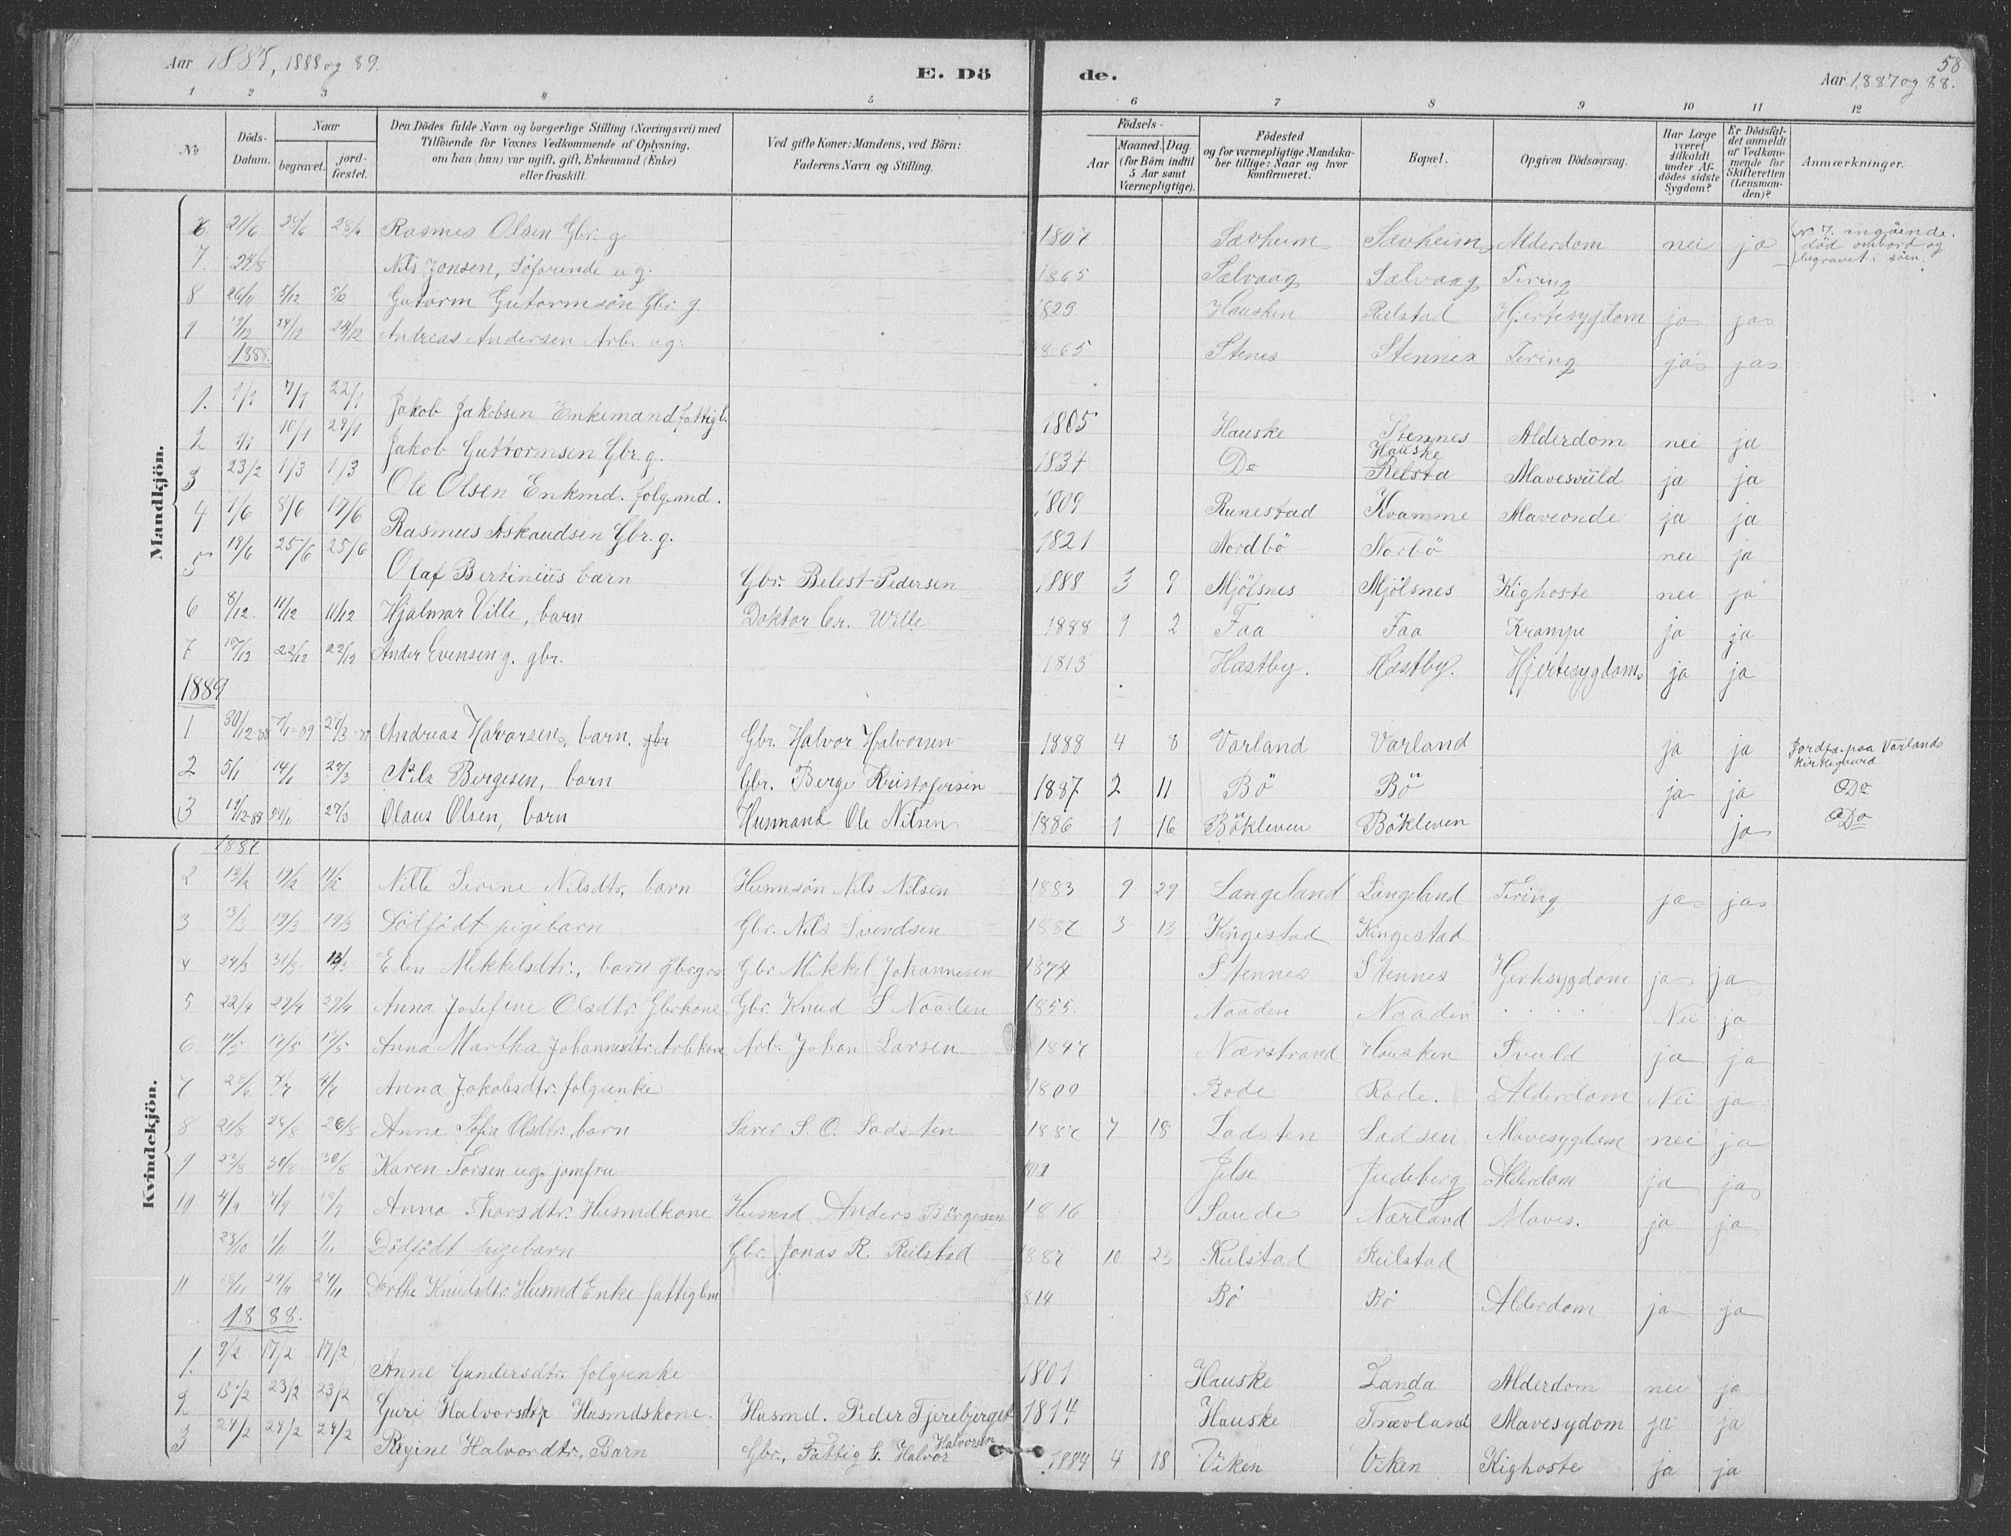 Aar 1887, 1888 og 89.
E. Dö
de.
58
Aar 1887 og 88.
1 2 3 4 5 6 7 8 9 10 11 12
No
Döds-Datum.
Naar
begravet.
jordfæstet.
Den Dödes fulde Navn og borgerlige Stilling (Næringsvei) med Tilföiende for Voxnes Vedkommende af Oplysning, om han (hun) var ugift, gift, Enkemand (Enke) eller fraskilt.
Ved gifte Koner: Mandens, ved Börn: Faderens Navn og Stilling.
Födsels-
Aar
Maaned. Dag.
(for Börn indtil 5 Aar samt Værnepligtige).
Födested og for værnepligtige Mandskaber tillige: Naar og hvor konfirmeret.
Bopæl.
Opgiven Dödsaarsag.
Har Læge været tilkaldt under Afdödes sidste Sygdom?
Er Dödsfaldet anmeldt af Vedkommende for Skifteretten (Lensmanden)?
Anmærkninger.
Mandkjön.
6 21/6 28/6 28/6 Rasmus Olsen Gbr. g 1807 Sævheim Sævheim Alderdom nei ja
No 7. ingående. død ombord og begravet i søen.
7. 24/8 Nils Jonsen, Söfarende ug. 1865 Sælvaag Sælvaag Tæring
8 26/11 5/12 5/12 Gutorm Gutormsön Gbr. g. 1829 Hausken Reilstad Hjertesygdom ja ja
9 19/12 24/12 24/12 Andreas Andersen Arb. ug. 1865 Stenes Stennes Tæring ja ja
1888.
1. 1/1 7/1 22/1 Jakob Jakobsen Enkemand fattigl. 1805 Hauske Stennes Alderdom nei ja
2 3/1 10/1 29/1 Jakob Guttormsen Gbr. g. 1834 Do Hauske Relsta Mavesvuld ja ja
3 23/2 1/3 1/3 Ole Olsen Enkmd. folgemd. 1809 Runestad Kvamme Maveonde ja ja
4 1/6 8/6 17/6 Rasmus Askaudsen Gbr. g. 1821 Nordbö Norbö nei ja
5 19/6 25/6 25/6 Olaf Bertinius barn Gbr. Belest Pedersen 1888 3 9 Mjölsnes Mjölsnes Kighoste nei ja
6 8/12. 11/12 11/12 Hjalmar Ville, barn Doktor Cr. Wille 1888 9 2 Faa Faa Krampe ja ja
7 17/12 22/12 22/12 Ander Evensen g. gbr. 1813 Hæstby. Hæstby. Hjertesygdom ja ja
1889
1 30/12-88 7/1-89 27/3-89 Andreas Halvorsen, barn. gbr Gbr. Halvor Halvorsen 1888 4 8 Varland Varland ja ja Jordfæ. paa Varlands Kirkegaard
2 5/1 14/1 27/3 Nils Bergesen, barn Gbr. Berge Kristofersen 1887 2 11 Bö Bö ja ja Do
3 19/12-88 24/1 27/3 Olaus Olsen, barn Husmand Ole Nilsen 1886 1 16 Bökleven Bökleven ja Do
Kvindekjön.
1887
2 13/2 19/2 19/2 Nille Serine Nilsdtr, barn Husmsön Nils Nilsen 1883 9 29 Langeland Langeland Tæring ja ja
3 13/3 19/3 19/3 Dödfödt pigebarn Gbr. Nils Svendsen 1887 3 13 Kingestad Kingestad
4 24/3 31/3 Elen Mikkelsdtr., barn Gbr Mikkel Johannesen 1874 Stennes Stennes Hjertesygdom ja ja
5 22/4 29/4 29/4 Anna Josefine Olsdtr. Gbrkone Gbr. Knud S Naaden 1855. Naaden Naaden . . . . . Nei ja
6. 11/5 17/5 17/5 Anna Martha Johannesdtr. Arbkone Arb. Johan Larsen 1847 Nærstrand Hausken Svuld ja ja
7 28/6 4/7 4/7 Anna Jakobsdtr. folgeenke 1800 Rode Rode. Alderdom Nei ja
8 21/8 26/8 26/8 Anna Sofia Olsdtr, barn S. O. Ladsten 1887 7 18 Ladsten Ladsen Mavesygdom nei ja
9 23/8 30/8 30/8 Karen Torsen ug. jomfru Jelse Judeberg Alderdom ja ja
10 4/9 Anna Thorsdtr. Husmdkone Husmd Anders Börgesen 1816 Saude Nærland Maves. ja ja
23/10 1/11 1/11 Dödfödt pigebarn Gbr. Jonas R. Reilstad 1887 10 23 Reilstad Reilstad
11 18/11 24/11 24/11 Dorthe Knudsdtr. Husmd Enke fattiglm 814 Bö Bö Alderdom ja ja
1888.
1. 9/2 17/2 17/2 Anne Gundersdtr. folgeenke 1801 Hauske Landa Alderdom nei ja
2 15/2 23/2 23/2 Guri Halvorsdtr Husmdskone. Husmd. Peder Tjerebjerget 1814 Hauske Trævland Mavesydom ja ja
3 24/2 29/2 29/2 Regine Halvordtr, Barn Gbr., Fattig l. Halvor Halvorsen 1884 4 18 Viken Viken Kighoste ja ja